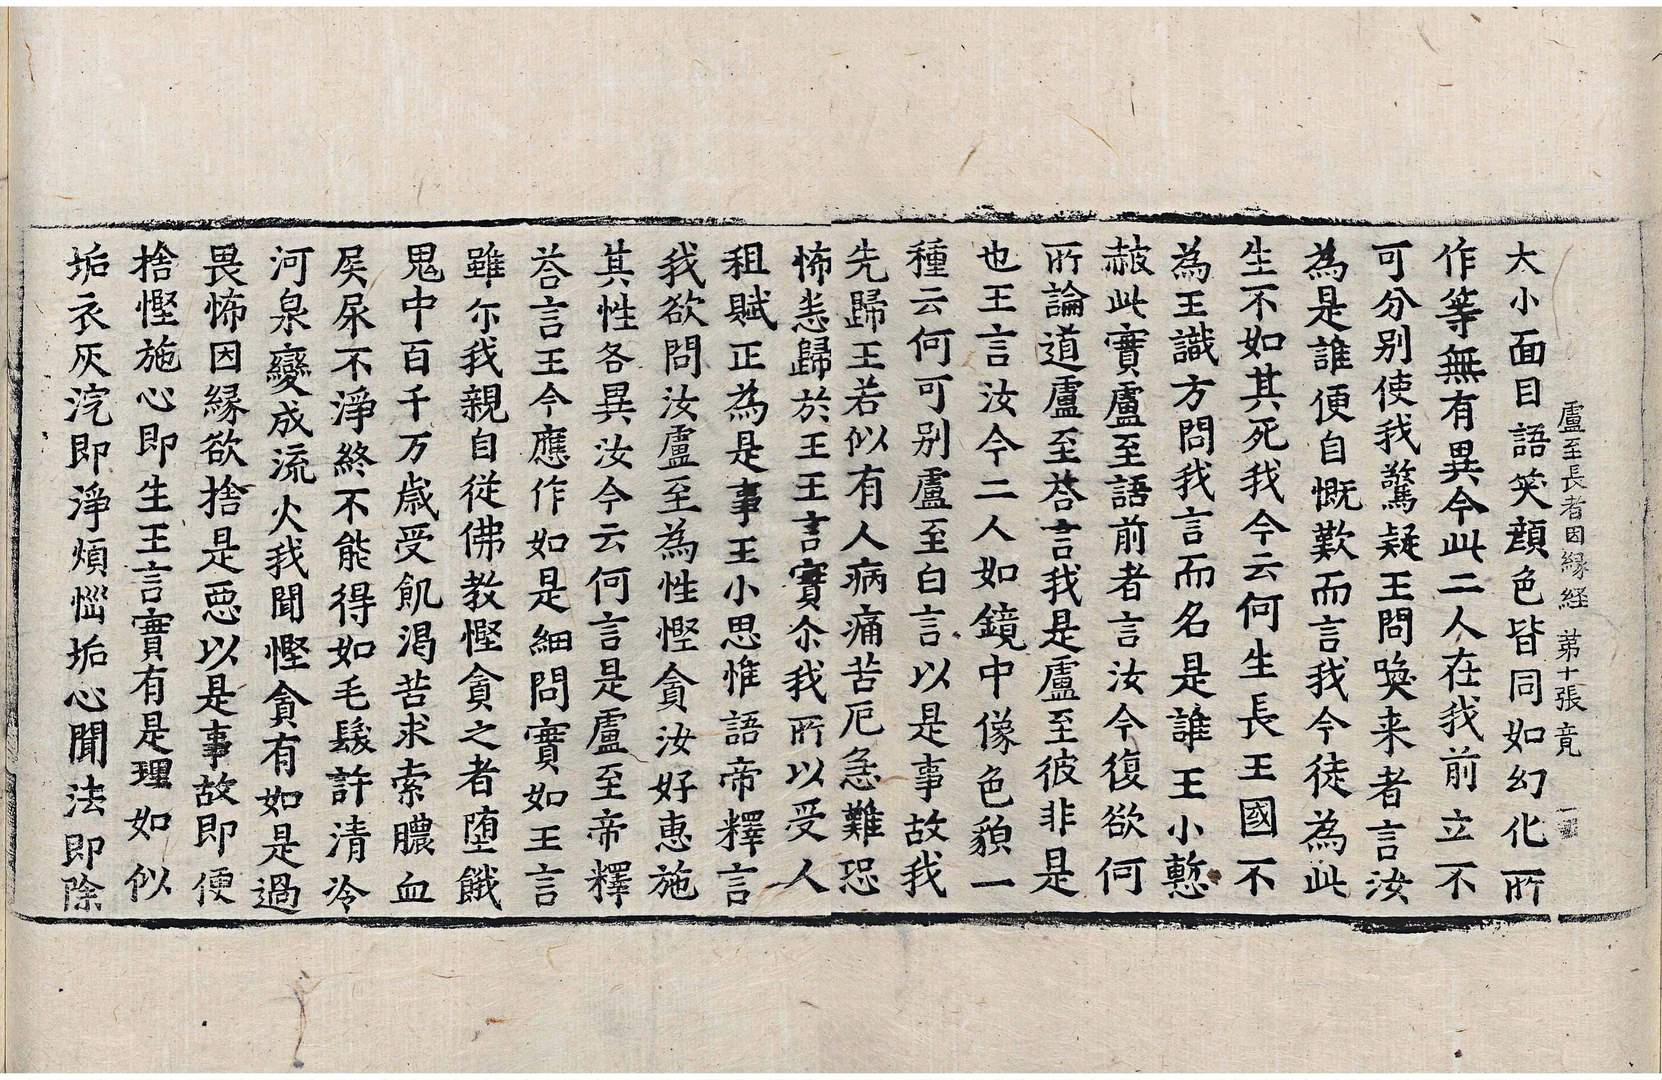 盧至長者因縁経 第十張 竟
大小面目語笑顔色皆同如幻化所
作等無有異今此二人在我前立不
可分别使我驚疑王問喚来者言汝
為是誰便自慨歎而言我今徒為此
生不如其死我今云何生長王國不
為王識方問我言而名是誰王小慙
赧此實盧至語前者言汝今復欲何
所論道盧至荅言我是盧至彼非是
也王言汝今二人如鏡中像色貌一
種云何可别盧至白言以是事故我
先歸王若似有人病痛苦厄急難恐
怖恚歸於王王言實尒我所以受人
租賦正為是事王小思惟語帝釋言
我欲問汝盧至為性慳貪汝好恵施
其性各異汝今云何言是盧至帝釋
荅言王今應作如是細問實如王言
雖尒我親自從佛教慳貪之者堕餓
鬼中百千万歳受飢渇苦求索膿血
屎尿不淨終不能得如毛髮許清冷
河泉變成流火我聞慳貪有如是過
畏怖因縁欲捨是惡以是事故即便
捨慳施心即生王言實有是理如似
垢衣灰浣即淨煩惱垢心聞法即除